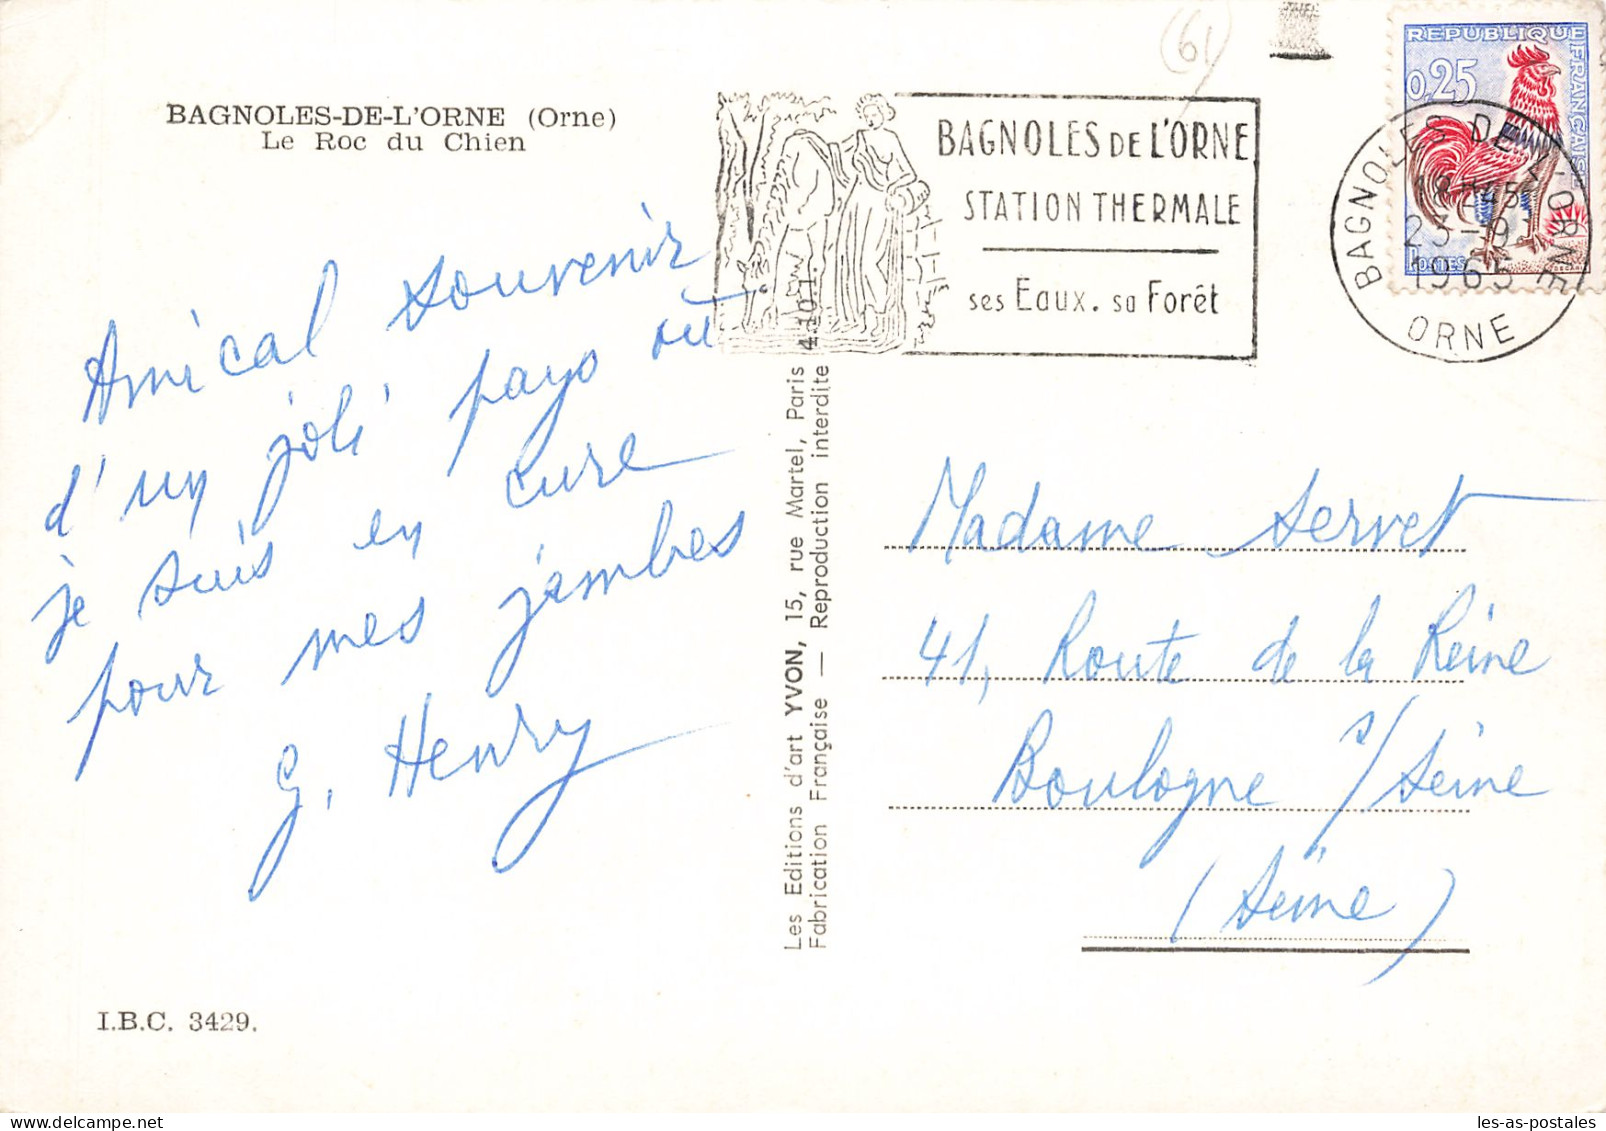 BAGNOLES-DE-L'ORNE (Orne)
Le Roc du Chien
(61
BAGNOLES DE L'ORNE
STATION THERMALE
ses Eaux. sa Forêt
REPUBLIQUE FRANÇAISE
0,25
POSTES
BAGNOLES DE L'ORNE
18H45
23-9
1965
ORNE
Amical souvenir
d'un joli pays où
je suis en cure
pour mes jambes
G. Henry
4101.
Les Editions d'art YVON, 15, rue Martel, Paris
Fabrication Française — Reproduction interdite
Madame Servet
41, Route de la Reine
Boulogne s/Seine
(Seine)
I.B.C. 3429.
les-as-postales